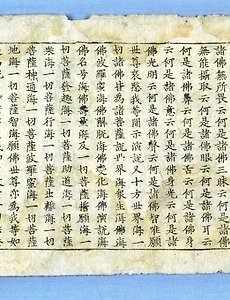 無所畏云何是諸佛三昧云何是諸佛
無能攝取云何是諸佛眼云何是諸佛耳云
何是諸佛鼻云何是諸佛舌云何是諸佛身
云何是諸佛意云何是諸佛身光云何是諸
佛光明云何是諸佛聲云何是諸佛智唯願
世尊哀愍我等開示演說又十方世界海一
切諸佛皆為諸菩薩說世界海眾生海佛海
佛波羅蜜海佛解脫海佛變化海佛演說海
佛名號海佛壽量海及一切菩薩誓願海一
切菩薩發趣海一切菩薩助道海一切菩薩
乘海一切菩薩行海一切菩薩出離海一切
菩薩神通海一切菩薩波羅蜜海一切菩薩
地海一切菩薩智海願佛世尊亦為我等如